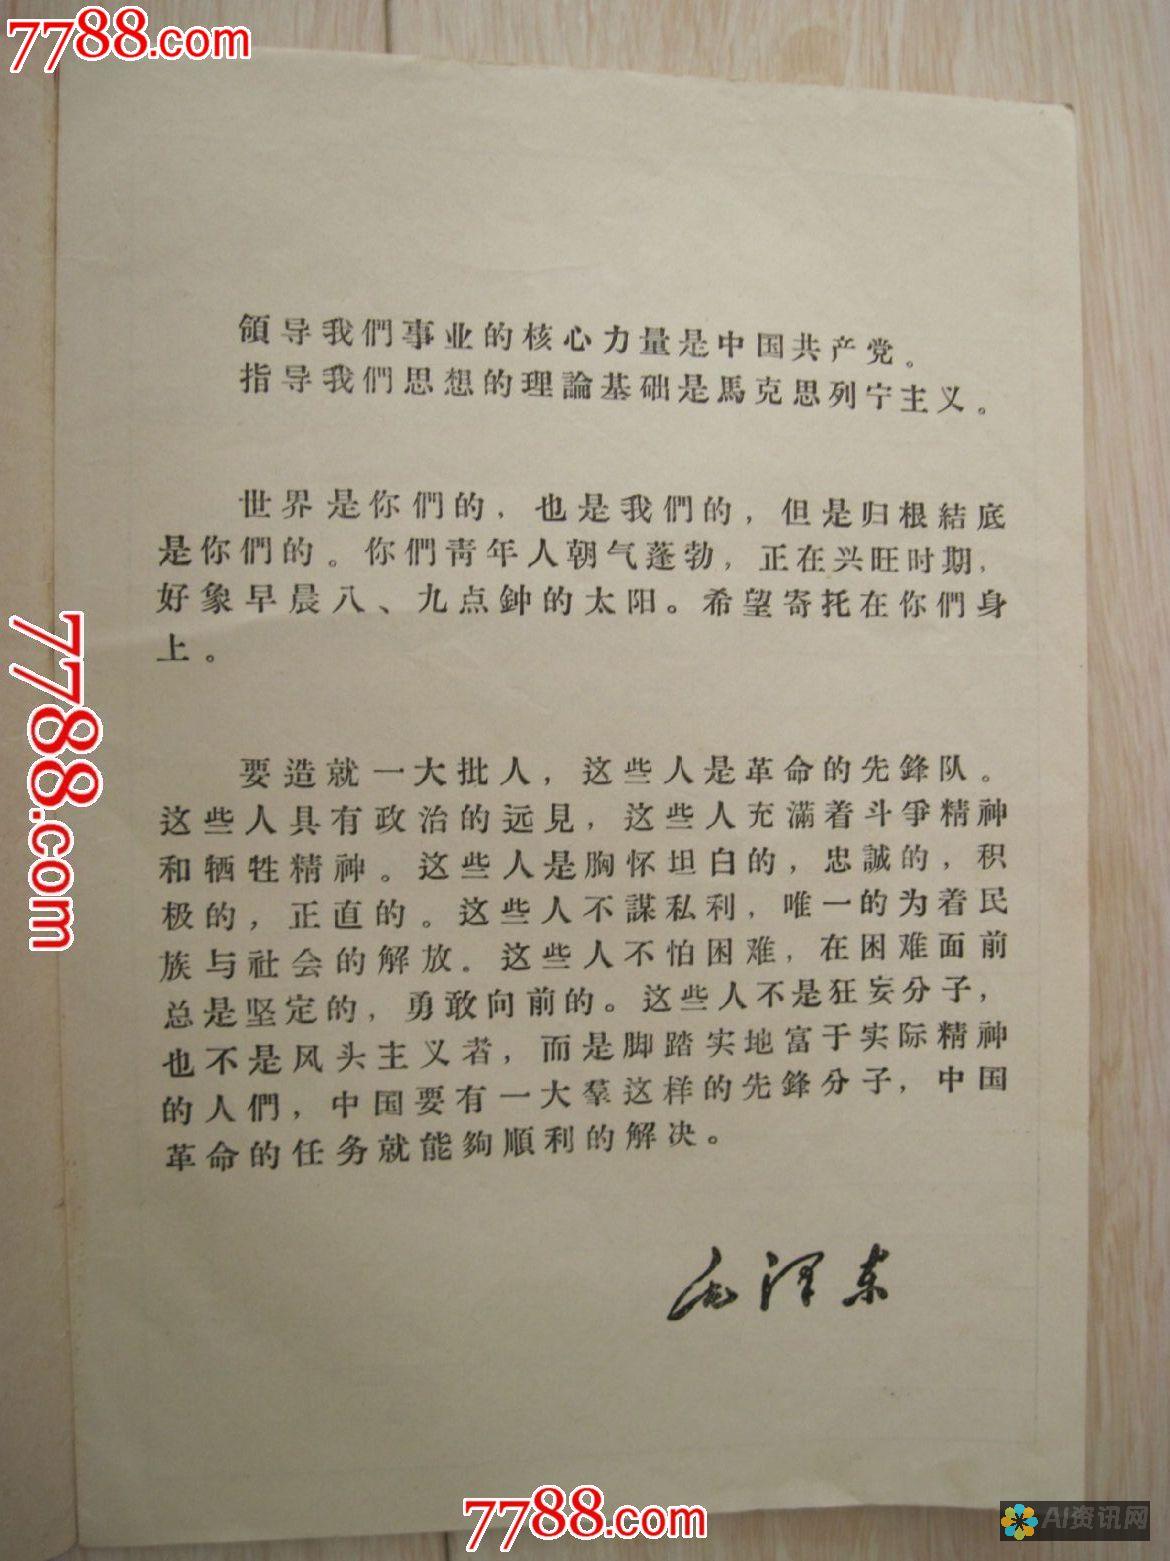 7788.com
領导我們事业的核心力量是中国共产党。
指导我們思想的理論基础是馬克思列宁主义。
世界是你們的，也是我們的，但是归根結底
是你們的。你們青年人朝气蓬勃，正在兴旺时期，
好象早晨八、九点鈡的太阳。希望寄托在你們身
上。
7788.com
要造就一大批人，这些人是革命的先鋒队。
这些人具有政治的远見，这些人充滿着斗爭精神
和牺牲精神。这些人是胸怀坦白的，忠誠的，积
极的，正直的。这些人不謀私利，唯一的为着民
族与社会的解放。这些人不怕困难，在困难面前
总是坚定的，勇敢向前的。这些人不是狂妄分子，
也不是风头主义者，而是脚踏实地富于实际精神
的人們，中国要有一大羣这样的先鋒分子，中国
革命的任务就能夠順利的解决。
毛泽东
7788.com
AI资讯网